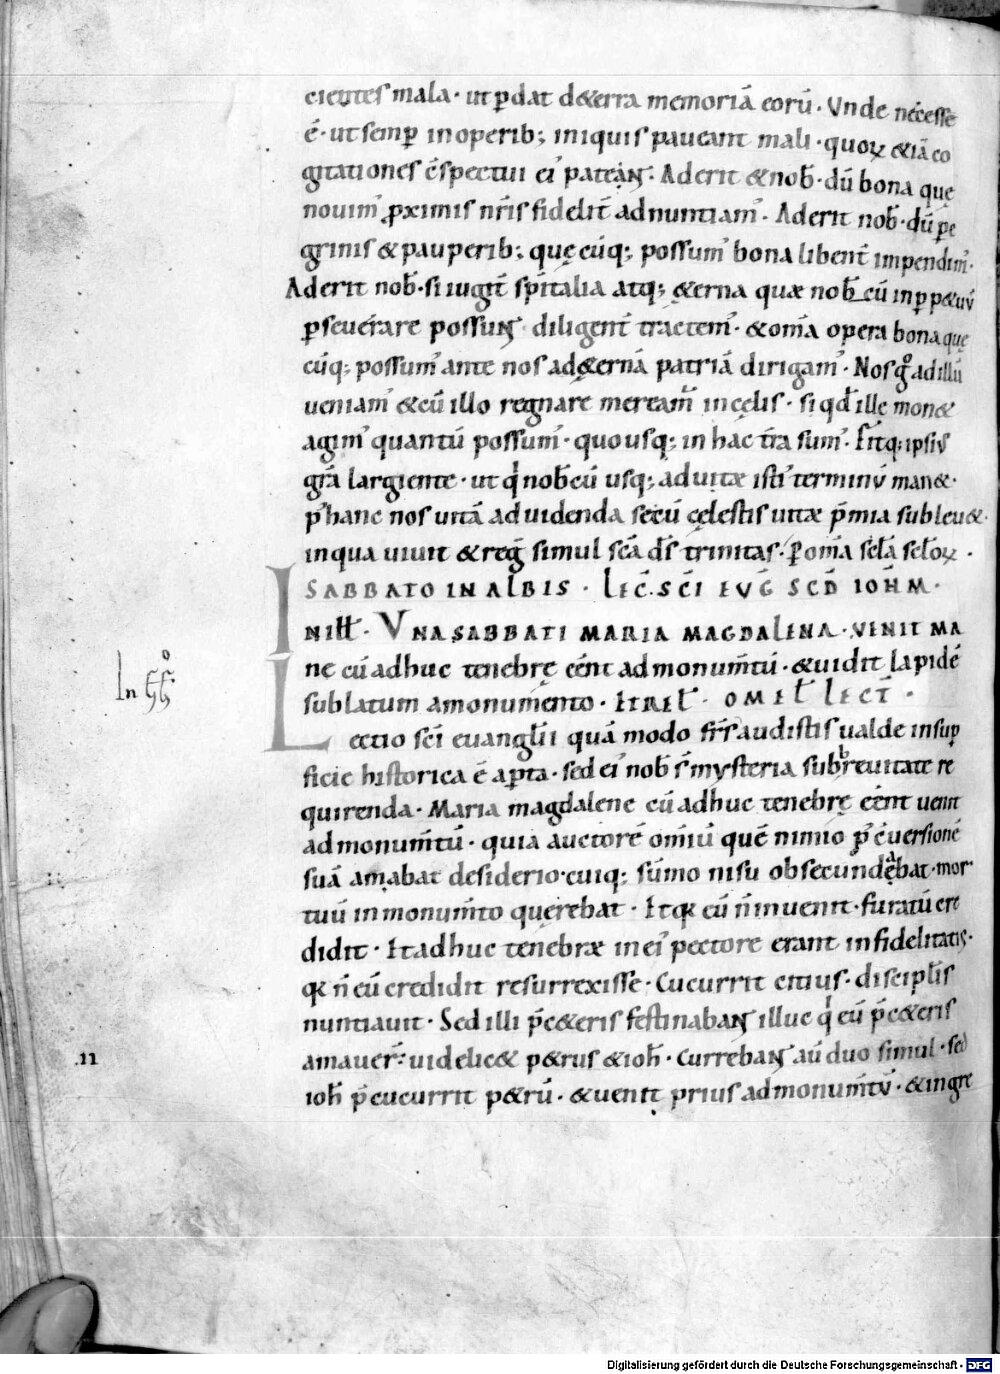 cientes mala · ut ꝑdat d&erra memoriā eorū · Vnde necesse
ē · ut semꝑ in operib; iniquis paueant mali · quoꝝ &iā co
gitationes c̄spectui ei' pateant · Aderit & nob̄ · dū bona quę
nouim' ꝓximis nr̄is fidelit̄ adnuntiam' · Aderit nob̄ · dū pe
grinis & pauperib; quęcūq; possum' bona libent̄ impendim' ·
Aderit nob̄ · si iugit̄ sp̄italia atq; &erna quæ nob̄cū in ꝑp&uū
ꝑseuerare possunt diligent̄ tractem' · & om̄a opera bona quę
cūq; possum' ante nos ad &ernā patriā dirigam' · Nos g̊ ad illū
ueniam' & cū illo regnare meream̄ in cęlis · si qd̄ ille mon&
agim' quantū possum' · quousq; in hac t̄ra sum' · Fitq; ipsiꝰ
gr̄a largiente · ut qͥ nob̄cū usq; ad uitæ isti' terminū man& ·
p' hanc nos uitā ad uidenda secū cęlestis uitæ p̄mia subleu& ·
in qua uiuit & reḡ simul sc̄a d̄s trinitas · ꝑ om̄a sc̄la sc̄loꝝ ·
SABBATO IN ALBIS · LEC̄ · SC̄I EVḠ SCD̄ IOHM̄ ·
IN ILL̄ · VNA SABBATI MARIA MAGDALENA · VENIT MA
ne cū adhuc tenebrę eēnt ad monum̄tū · & uidit lapidē
In
sublatum a monumento · ET REL̄ · OMEL̄ LECT̄ ·
Lectio sc̄i euanglii quā modo fr̄s audistis ualde in suꝑ
ficie historica ē aꝑta · sed ei' nob̄ s̄ mysteria sub breuitate re
quirenda · Maria magdalene cū adhuc tenebrę eēnt uenit
ad monum̄tū · quia auctorē om̄iū quē nimio p' c̄uersionē
suā amabat desiderio · cuiq; sūmo nisu obsecundabat · mor
tuū in monum̄to quęrebat · Et qꝛ cū n̄ inuenit · furatū cre
didit · Et adhuc tenebræ in ei' pectore erant infidelitatis ·
qꝛ n̄ eū credidit resurrexisse · Cucurrit citius · discipl̄is
nuntiauit · Sed illi p̄ c&eris festinabant illuc qͥ eū p̄ c&eris
.II
amauer̄ · uidelic& p&rus & ioh̄ · Currebant aū duo simul · sed
ioh̄ p̄cucurrit p&rū · & uenit prius ad monum̄tū · & ingre
Digitalisierung gefördert durch die Deutsche Forschungsgemeinschaft - DFG